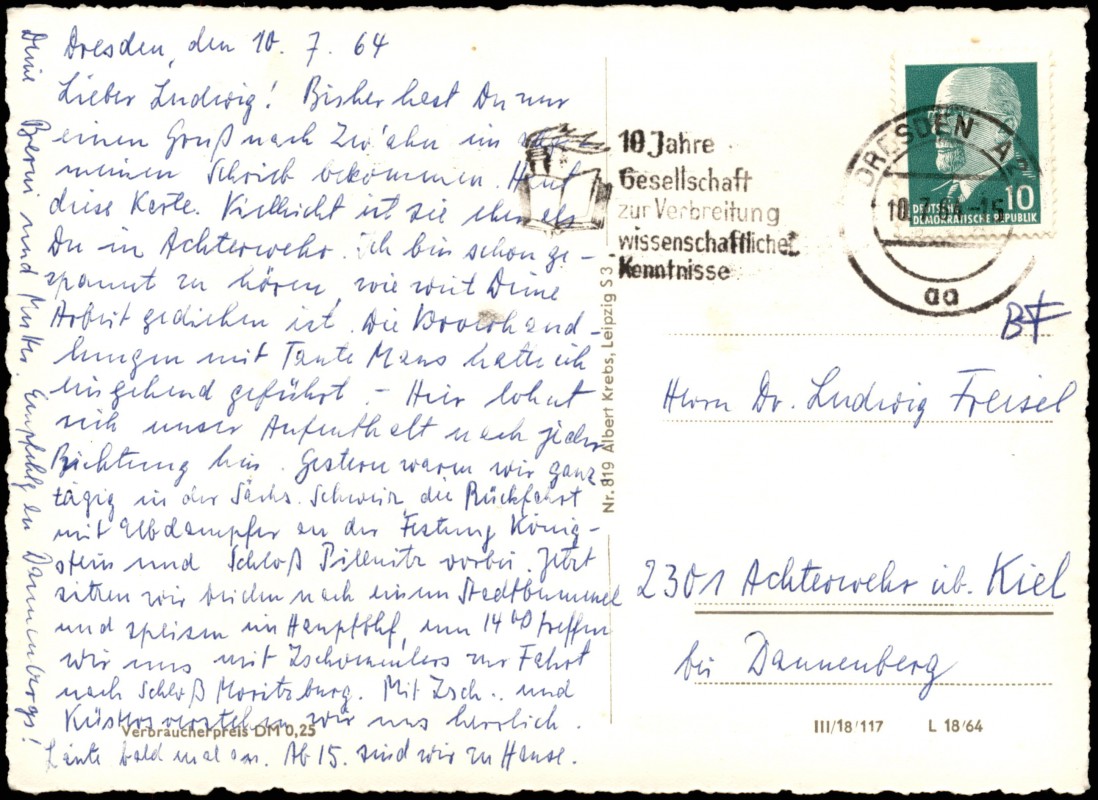 Dresden, den 10. 7. 64
Lieber Ludwig! Bisher hast Du nur
einen Gruß nach Zw'ahn im
meinen Schrieb bekommen. Heut
diese Karte. Vielleicht ist sie eher als
Du in Achterwehr. Ich bin schon ge-
spannt zu hören, wie weit Deine
Arbeit gediehen ist. Die Vorverhand-
lungen mit Tante Mans hatte ich
eingehend geführt. – Hier lohnt
sich unser Aufenthalt nach jeder
Richtung hin. Gestern waren wir ganz
tägig in der Sächs. Schweiz, die Rückfahrt
mit Elbdampfer an der Festung König-
stein und Schloß Pillnitz vorbei. Jetzt
sitzen wir beiden nach einem Stadtbummel
und speisen im Hauptbhf, um 14 00 treffen
wir uns mit Zschommlers zur Fahrt
nach Schloß Moritzburg. Mit Zsch.. und
Küsters verstehen wir uns herrlich.
Läute bald mal an. Ab 15. sind wir zu Hause.
Deine Berni und Mutter. Empfehlg an Dannenbergs!
Verbraucherpreis DM 0,25
Nr. 819 Albert Krebs, Leipzig S 3
10 Jahre
Gesellschaft
zur Verbreitung
wissenschaftlicher
Kenntnisse
DRESDEN A
10.7.64-15
aa
10
DEUTSCHE
DEMOKRATISCHE REPUBLIK
BF
Herrn Dr. Ludwig Freisel
2301 Achterwehr üb. Kiel
bei Dannenberg
III/18/117 L 18/64